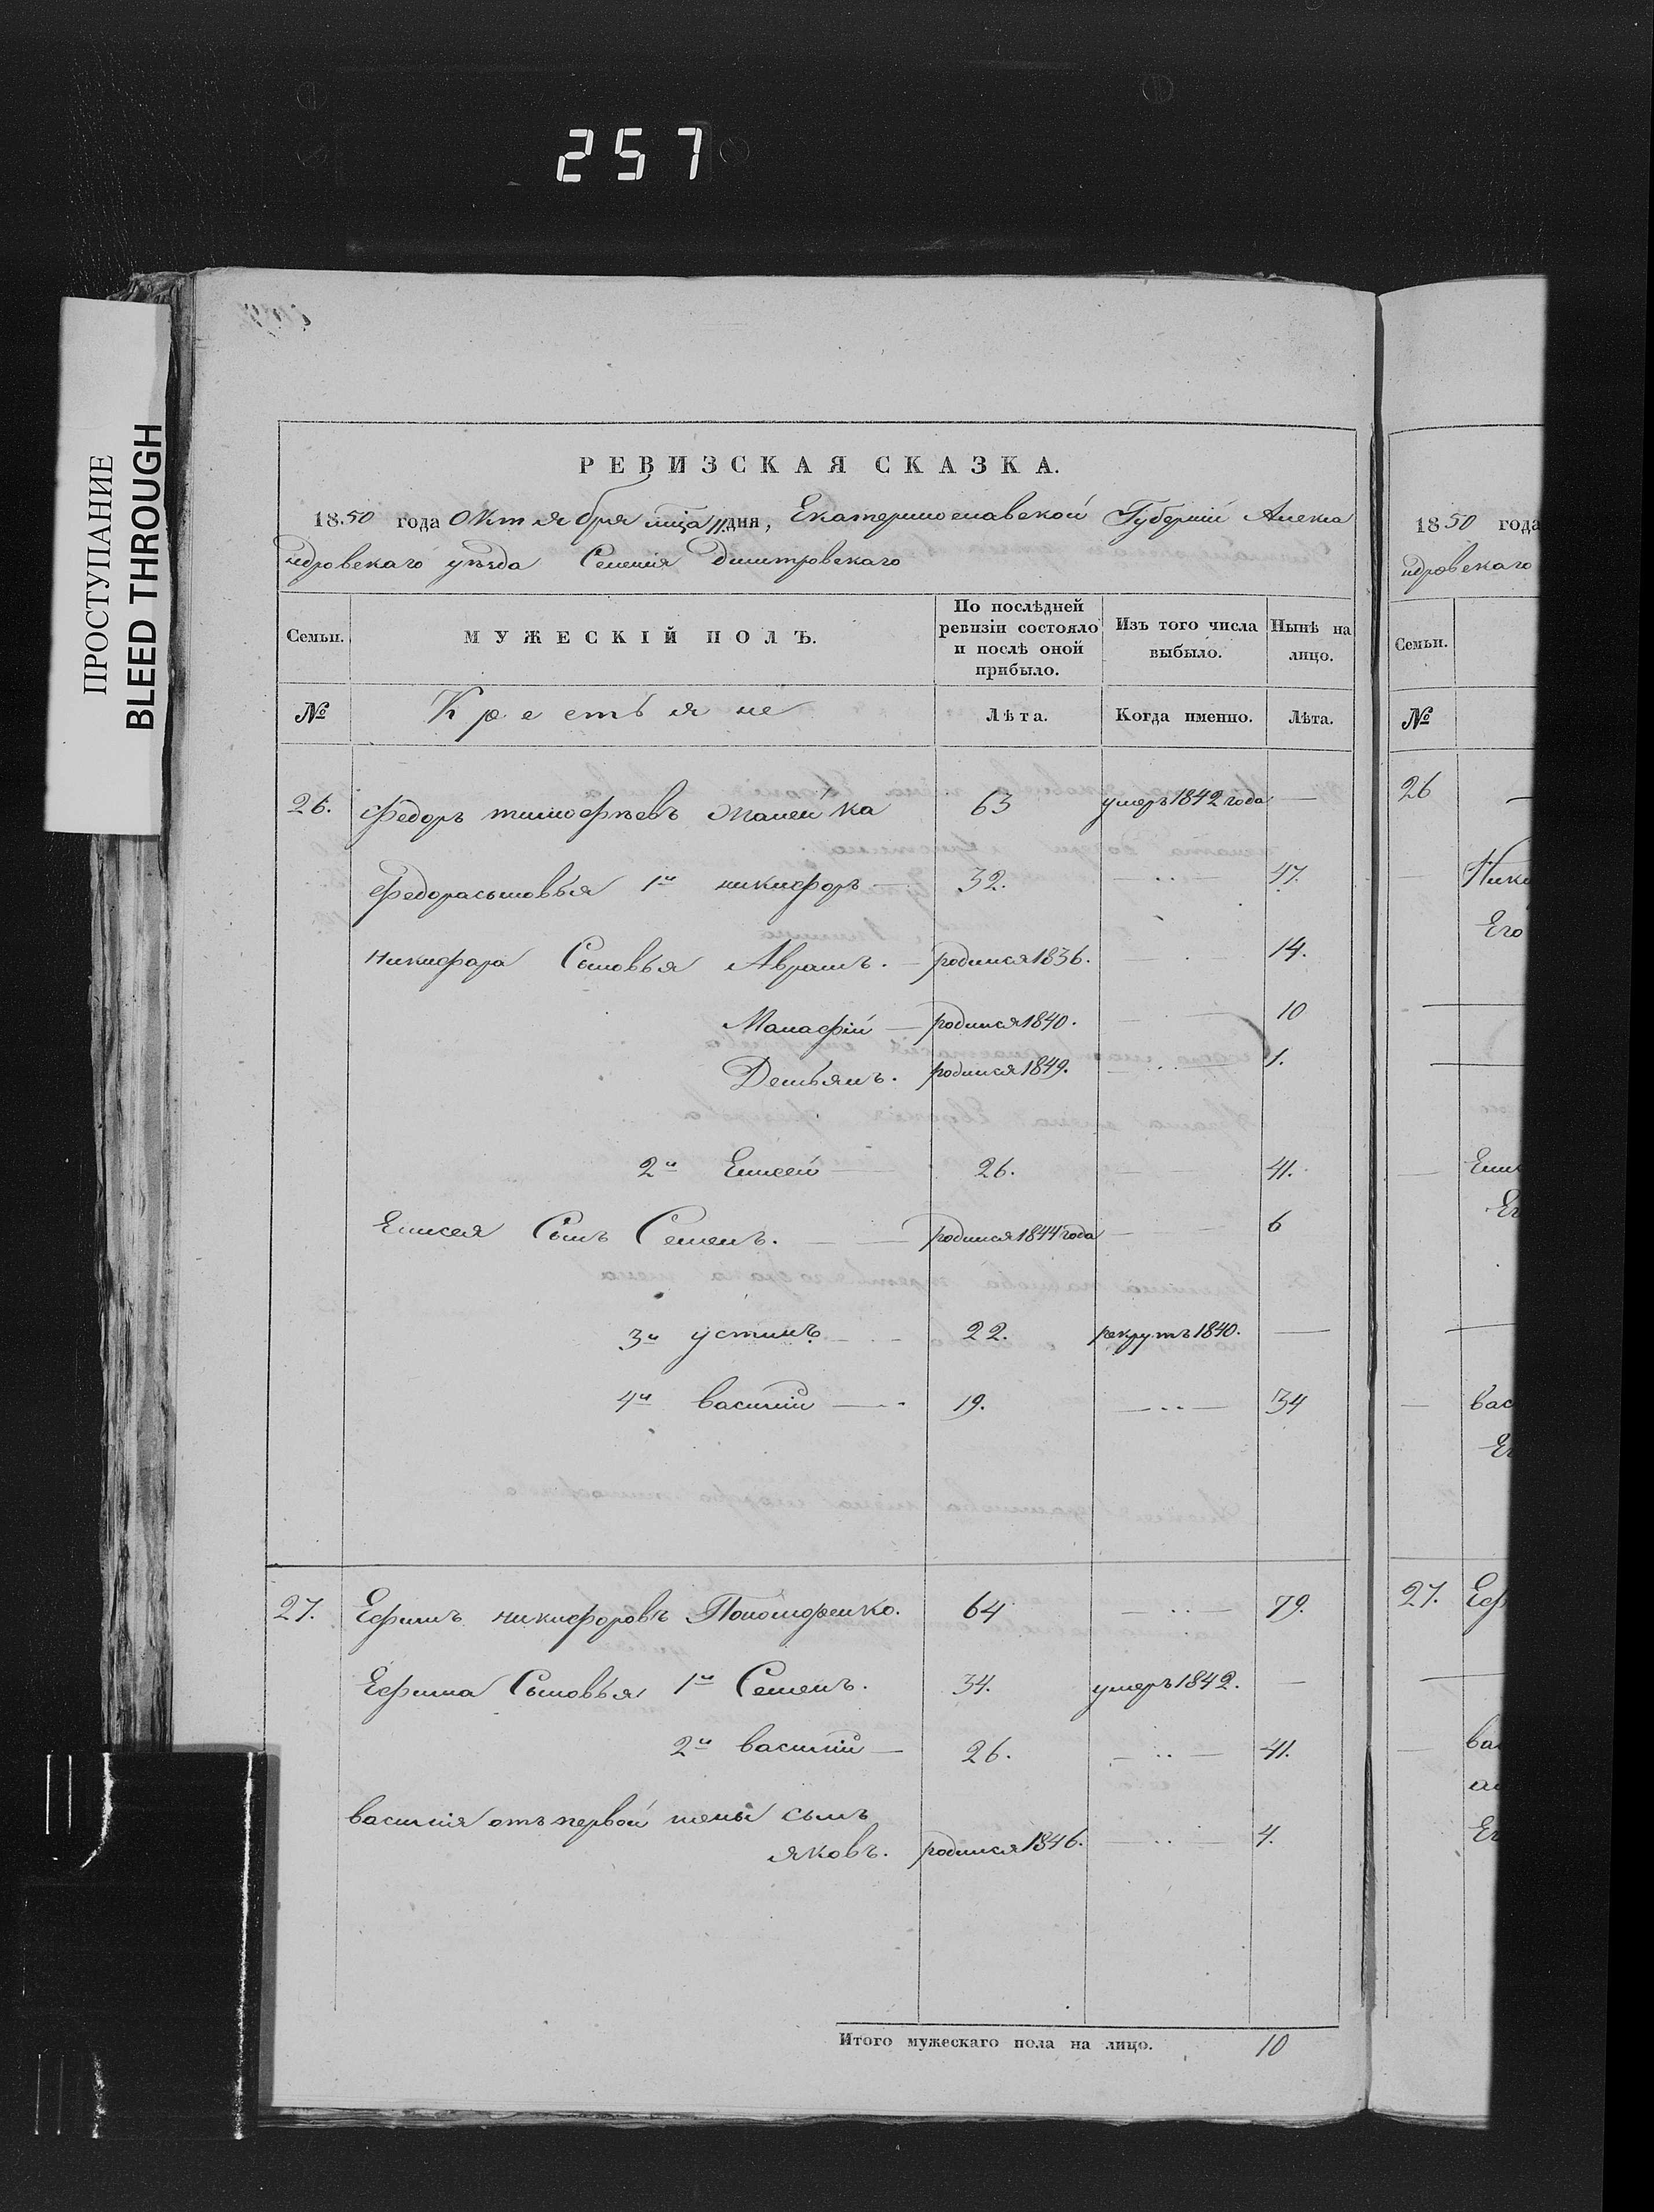 257
ПРОСТУПАНИЕ
BLEED THROUGH
РЕВИЗСКАЯ СКАЗКА.
1850 года Октября мца 11 дня, Екатеринославской Губернiи Алекса
ндровскаго уезда Селенiя Дмитровскаго
Семьи. МУЖЕСКІЙ ПОЛЪ. По послѣдней ревизіи состояло и послѣ оной прибыло. Изъ того числа выбыло. Нынѣ на лицо.
№ Крестьяне Лѣта. Когда именно. Лѣта.
26. Федоръ тимофѣевъ 63 умеръ 1842 года —
Федора сыновья 1й никифоръ — 32. — 47.
никифора Сыновья Аврамъ. — родился 1836. — 14.
Манасфiй — родился 1840. — 10
Демьянъ. родился 1849. — 1.
2й Елисей — 26. — 41.
Елисея Сынъ Семенъ. — родился 1844 года — 6
3й устинъ — 22. рекрутъ 1840. —
4й василiй — 19. — 34
27. Ефимъ никифоровъ Пономоренко. 64 — 79.
Ефима Сыновья 1й Семенъ. 34. умеръ 1842. —
2й василiй — 26. — 41.
василiя отъ первой жены сынъ
яковъ. родился 1846. — 4.
Итого мужескаго пола на лицо. 10
1850 года
ндровскаго
Семьи.
№
26
27.